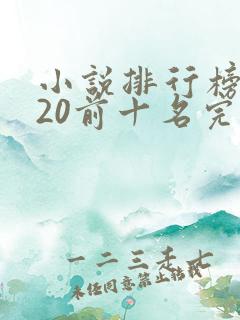 小說排行榜
20前十名完
一二三手七
未经同意禁止转载